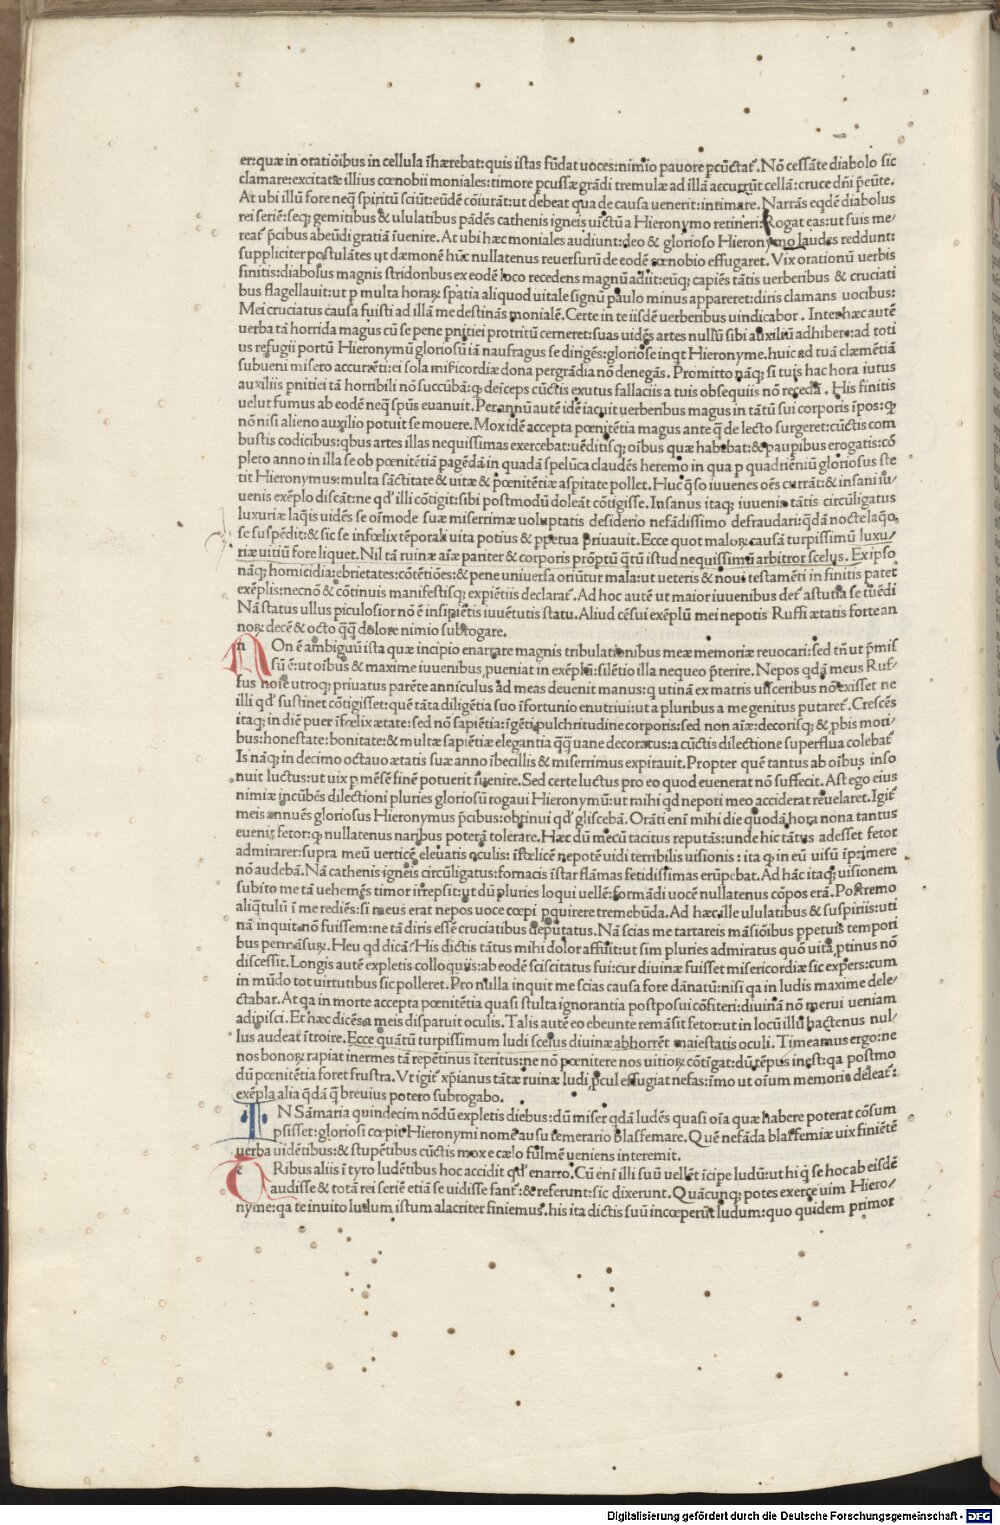 er:quæ in oratiõibus in cellula ĩhærebat:quis istas fũdat uoces:nimio pauore pcũctat᷑. Nõ cessãte diabolo sic
clamare:excitatæ illius cœnobii moniales:timore pcussæ grãdi tremulæ ad illã accurrũt cellã:cruce dñi p̃eũte.
At ubi illũ fore neq̃ spiritũ sciũt:eũdẽ cõiurãt:ut debeat qua de causa uenerit:intimare. Narrãs eqdẽ diabolus
rei seriẽ:seq; gemitibus & ululatibus pãdẽs cathenis igneis uictũ a Hieronymo retineri:Rogat eas:ut suis me-
reat᷑ p̃cibus abeũdi gratiã ĩuenire. At ubi hæc moniales audiunt:deo & glorioso Hieronymo laudes reddunt:
suppliciter postulãtes ut dæmonẽ hũc nullatenus reuersurũ de eodẽ cœnobio effugaret. Vix orationũ uerbis
finitis:diabolus magnis stridoribus ex eodẽ loco recedens magnũ adiit:eũq; capiẽs tãtis uerberibus & cruciati
bus flagellauit:ut p multa horaꝝ spatia aliquod uitale signũ paulo minus appareret:diris clamans uocibus:
Mei cruciatus causa fuisti ad illã me destinãs monialẽ. Certe in te iisdẽ uerberibus uindicabor. Inter hæc autẽ
uerba tã horrida magus cũ se pene pnitiei protritũ cerneret:suas uidẽs artes nullũ sibi auxiliũ adhibere:ad toti
us refugii portũ Hieronymũ gloriosũ iã naufragus se dirigẽs:gloriose inqt Hieronyme.huic ad tuã clæmẽtiã
subueni misero accurrẽti:ei sola misericordiæ dona pergrãdia nõ denegãs. Promitto nãq; si tuis hac hora iutus
auxiliis pnitiei tã horribili nõ succũbã:qꝫ deĩceps cũctis exutus fallaciis a tuis obsequiis nõ recedã. His finitis
uelut fumus ab eodẽ neq̃ spũs euanuit. Per annũ autẽ idẽ iacuit uerberibus magus in tãtũ sui corporis ĩpos:qꝫ
nõ nisi alieno auxilio potuit se mouere. Mox idẽ accepta pœnitẽtia magus ante q̃ de lecto surgeret:cũctis com
bustis codicibus:qbus artes illas nequissimas exercebat:uẽditisq; oĩbus quæ habebat:& paupibus erogatis:cõ
pleto anno in illa se ob pœnitẽtiã pagẽdã in quadã spelũca claudẽs heremo in qua p quadriẽniũ gloriosus ste
tit Hieronymus:multa sãctitate & uitæ & pœnitẽtiæ aspitate pollet. Huc q̃so iuuenes oẽs currãt:& insani iu-
uenis exẽplo discãt:ne qd᷑ illi cõtigit:sibi postmodũ doleãt cõtigisse. Insanus itaq; iuuenis tãtis circũligatus
luxuriæ laq̃is uidẽs se oĩmode suæ miserrimæ uoluptatis desiderio nefãdissimo defraudari:q̃dã nocte laq̃o
se suspẽdit:& sic se infœlix tẽporali uita potius & ppetua priuauit. Ecce quot maloꝝ causã turpissimũ luxu-
riæ uitiũ fore liquet. Nil tã ruinæ aĩæ pariter & corporis prõptũ q̃tũ istud nequissimũ arbitror scelus. Ex ipso
nãq; homicidia:ebrietates:cõtẽtiões:& pene universa oriũtur mala:ut ueteris & noui testamẽti in finitis patet
exẽplis:necnõ & cõtinuis manifestisq; expiẽtiis declarat᷑. Ad hoc autẽ ut maior iuuenibus det᷑ astutia se tuẽdi
Nã status ullus piculosior nõ ẽ insipiẽtis iuuẽtutis statu. Aliud cẽsui exẽplũ mei nepotis Ruffi ætatis forte an
noꝝ decẽ & octo q̃q̃ dolore nimio subrogare.
NOn ẽ ambiguũ ista quæ incipio enarrare magnis tribulationibus meæ memoriæ reuocari:sed tñ ut p̃mis
sũ ẽ:ut oĩbus & maxime iuuenibus pueniat in exẽplũ:silẽtio illa nequeo p̃terire. Nepos qdã meus Ruf-
fus noĩe utroq; priuatus parẽte anniculus ad meas deuenit manus:q utinã ex matris uisceribus nõ exisset ne
illi qd᷑ sustinet cõtigisset:quẽ tãta diligẽtia suo ĩfortunio enutriui:ut a pluribus a me genitus putaret᷑. Crescẽs
itaq; in diẽ puer ĩfœlix ætate:sed nõ sapiẽtia:ĩgẽti pulchritudine corporis:sed non aĩæ:decorisq; & pbis mori-
bus:honestate:bonitate:& multæ sapiẽtiæ elegantia q̃q̃ uane decoratus:a cũctis dilectione superflua colebat᷑
Is nãq; in decimo octauo ætatis suæ anno ĩbecillis & miserrimus expirauit. Propter quẽ tantus ab oĩbus inso
nuit luctus:ut uix p mẽsẽ finẽ potuerit ĩuenire. Sed certe luctus pro eo quod euenerat nõ suffecit. Ast ego eius
nimiæ incũbẽs dilectioni pluries gloriosũ rogaui Hieronymũ:ut mihi qd nepoti meo acciderat reuelaret. Igit᷑
meis annuẽs gloriosus Hieronymus p̃cibus:obtinui qd᷑ gliscebã. Orãti enĩ mihi die quodã hora nona tantus
euenit fetor:qꝫ nullatenus naribus poterã tolerare. Hæc dũ mecũ tacitus reputãs:unde hic tãtus adesset fetor
admirarer:supra meũ uerticẽ eleuatis oculis:ĩfœlicẽ nepotẽ uidi terribilis uisionis:ita qꝫ in eũ uisũ ĩprimere
nõ audebã. Nã cathenis igneis circũligatus:fornacis ĩstar flãmas fetidissimas erũpebat. Ad hãc itaq; uisionem
subito me tã uehemẽs timor irrepsit:ut dũ pluries loqui uellẽ:formãdi uocẽ nullatenus cõpos erã. Postremo
aliq̃tulũ ĩ me rediẽs:si meus erat nepos uoce cœpi pquirere tremebũda. Ad hæc ille ululatibus & suspiriis:uti
nã inquit nõ fuissem:ne tã diris essẽ cruciatibus deputatus. Nã scias me tartareis mãsiõibus ppetuis tempori
bus permãsurꝝ. Heu qd dicã? His dictis tãtus mihi dolor affuit:ut sim pluries admiratus quõ uita ptinus nõ
discessit. Longis autẽ expletis colloquiis:ab eodẽ sciscitatus fui:cur diuinæ fuisset misericordiæ sic expers:cum
in mũdo tot uirtutibus sic polleret. Pro nulla inquit me scias causa fore dãnatũ:nisi qa in ludis maxime dele-
ctabar. At qa in morte accepta pœnitẽtia quasi stulta ignorantia postposui cõfiteri:diuinã nõ merui ueniam
adipisci. Et hæc dicẽs a meis disparuit oculis. Talis autẽ eo ebeunte remãsit fetor:ut in locũ illũ hactenus nul-
lus audeat ĩtroire. Ecce quãtũ turpissimum ludi scelus diuinæ abhorrẽt maiestatis oculi. Timeamus ergo:ne
nos bonoꝝ rapiat inermes tã repẽtinus ĩteritus:ne nõ pœnitere nos uitioꝝ cõtĩgat:dũ tẽpus inẽst:qa postmo
dũ pœnitẽtia foret frustra. Vt igit᷑ xp̃ianus tãtæ ruinæ ludi pcul effugiat nefas:ĩmo ut oĩum memoria deleat᷑:
exẽpla alia q̃dã q̃ breuius potero subrogabo.
IN Samaria quindecim nõdũ expletis diebus:dũ miser qdã ludẽs quasi oĩa quæ habere poterat cõsum
psisset:gloriosi cœpit Hieronymi nomẽ ausu temerario blasfemare. Quẽ nefãda blasfemiæ uix finiẽtẽ
uerba uidẽtibus:& stupẽtibus cũctis mox e cælo fulmẽ ueniens interemit.
TRibus aliis ĩ tyro ludẽtibus hoc accidit qd᷑ enarro. Cũ enĩ illi suũ uellẽt ĩcipe ludũ:ut hi q̃ se hoc ab eisdẽ
audisse & totã rei seriẽ etiã se uidisse fant᷑:& referunt:sic dixerunt. Quãcunq; potes exerce uim Hiero-
nyme:qa te inuito ludum istum alacriter finiemus.his ita dictis suũ incœperũt ludum:quo quidem primor
Digitalisierung gefördert durch die Deutsche Forschungsgemeinschaft - DFG